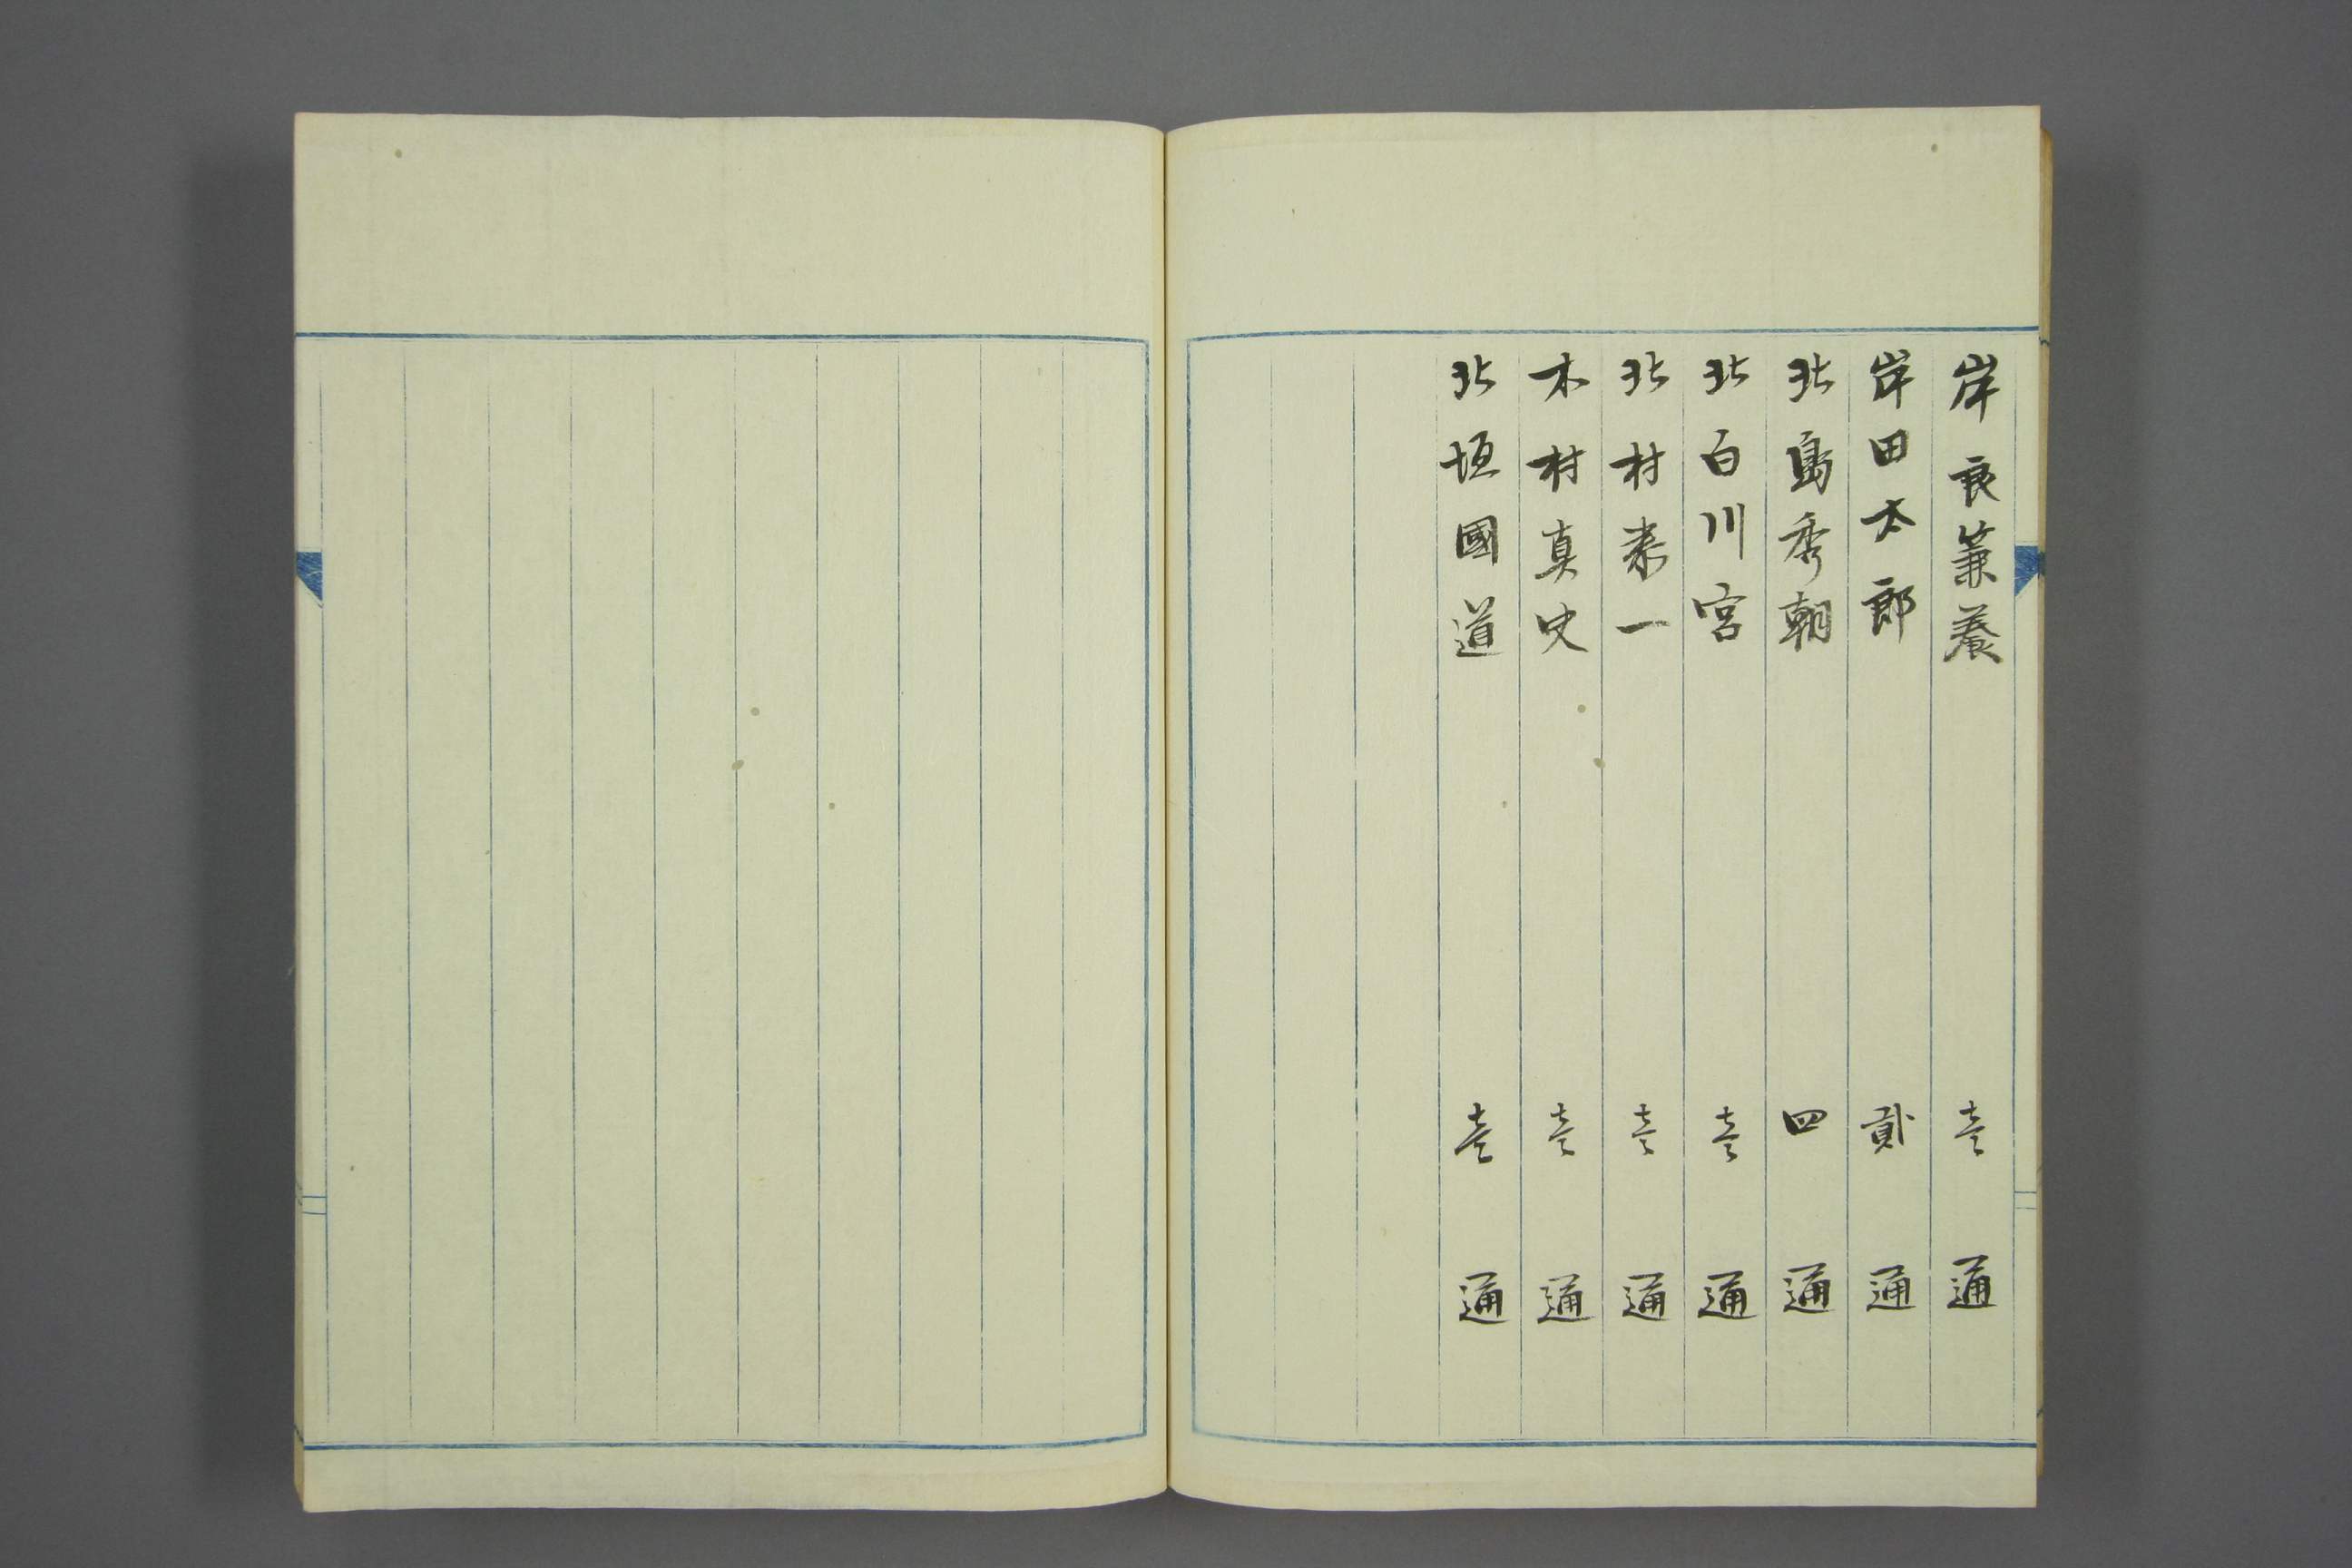 岸良兼養 壱通
岸田太郎 貳通
北島秀朝 四通
北白川宮 壱通
北村泰一 壱通
木村真史 壱通
北垣國道 壱通